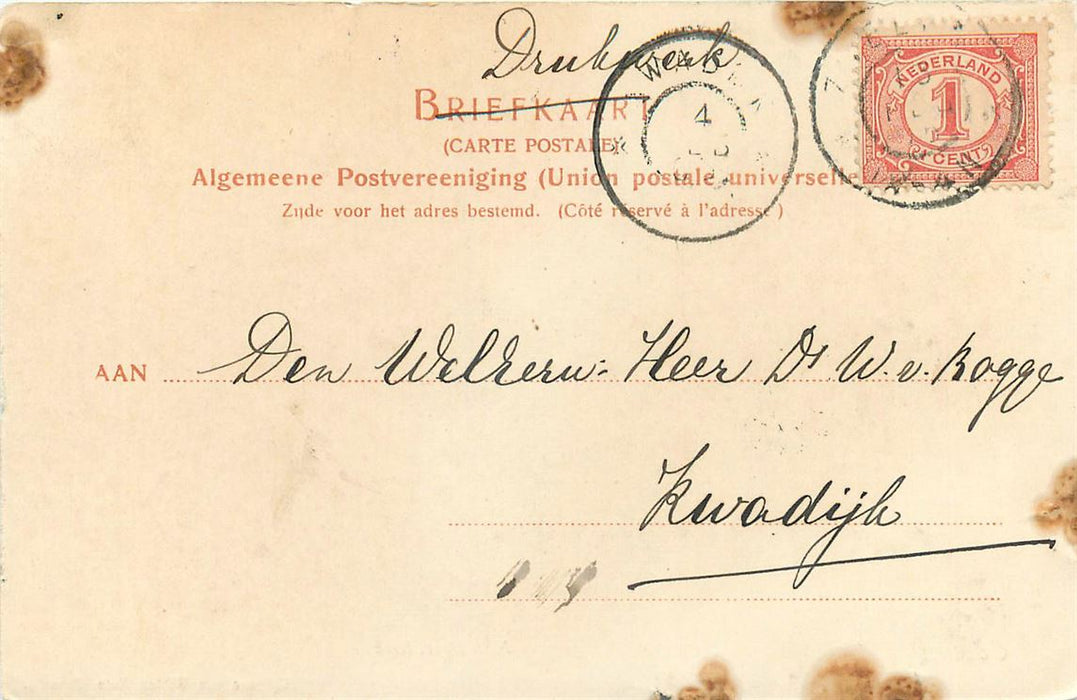 Drukwerk
BRIEFKAART
(CARTE POSTALE)
Algemeene Postvereeniging (Union postale universelle)
Zijde voor het adres bestemd. (Côté réservé à l'adresse)
NEDERLAND
1
CENT
4
AAN Den WelEerw: Heer Ds W. v. Rogge
Kwadijk